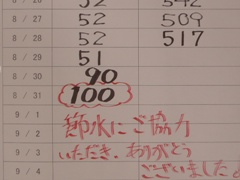 8/28 52 509
8/28 52 517
8/29 51
8/30 90
8/31 100
9/1 節水にご協力
9/2
9/3 いただき、ありがとう
9/4 ございました